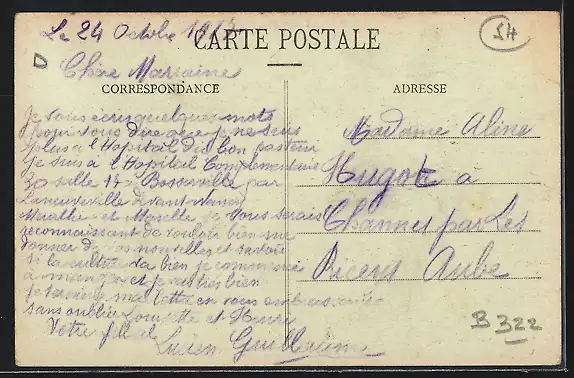 Le 24 Octobre 1917
CARTE POSTALE
SH
D
Chère Marraine
CORRESPONDANCE
ADRESSE
Je vous écris quelques mots
pour vous dire que je ne suis
plus a l'Hopital du bon pasteur
Je suis a l'Hopital Complémentaire
30 salle 17 Bosserville par
Laneuveville devant Nancy
Meurthe et Moselle Je vous serais
reconnaissant de vouloir bien me
donner de vos nouvelles et savoir
si la culture va bien je commence
à manger et je vais très bien
Je termine ma lettre en vous embrassant
sans oublier et Henri
Votre filleul
Lucien Guillaume
Madame Aline
Hugot à
Channes par Les
Riceys Aube
B 322